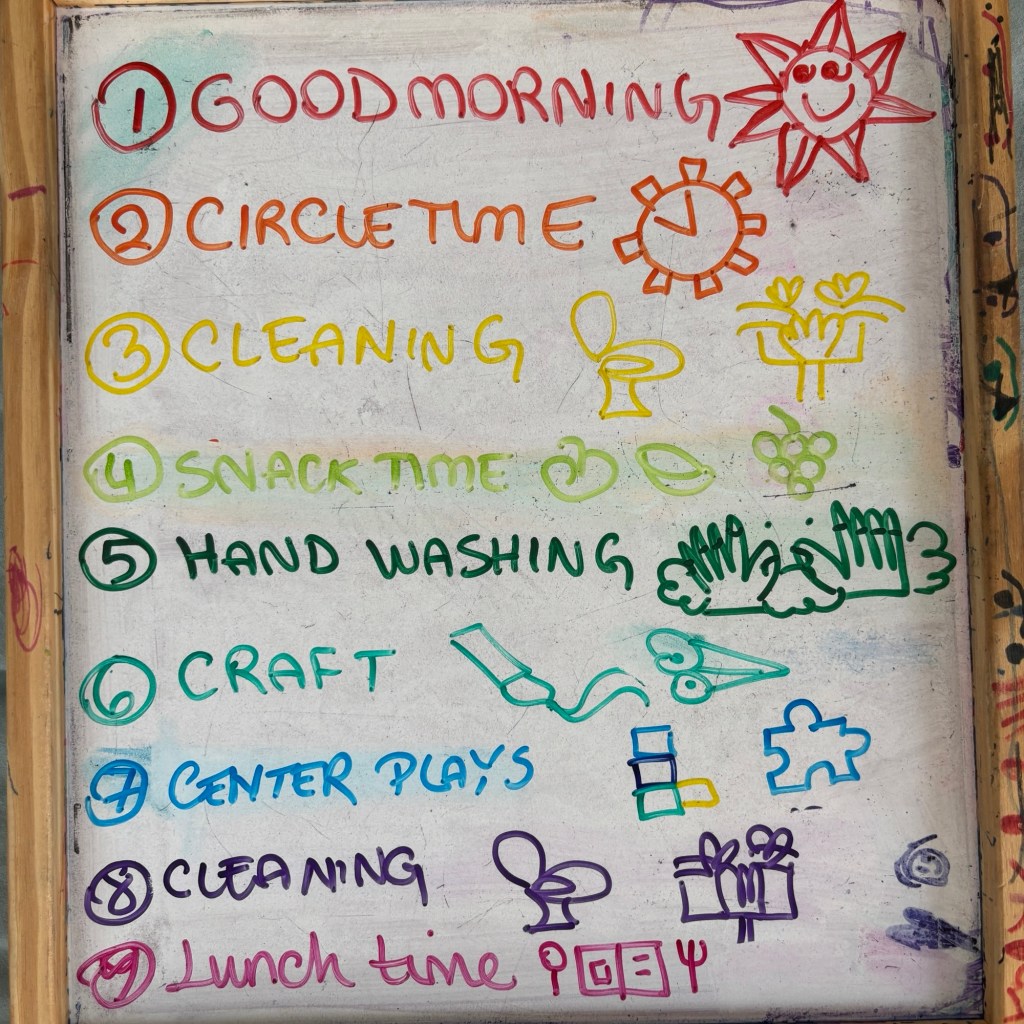 1 GOOD MORNING
2 CIRCLE TIME
3 CLEANING
4 SNACK TIME
5 HAND WASHING
6 CRAFT
7 CENTER PLAYS
8 CLEANING
9 Lunch time